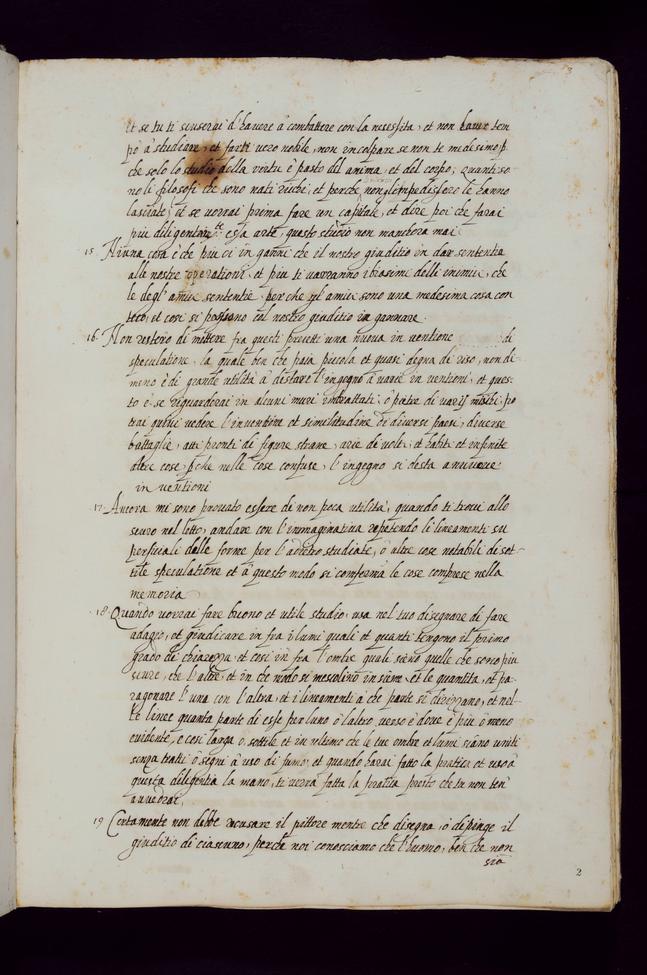 3
et se tu ti scuserai d'havere à combattere con la nesessita, et non haver tem
po à studiare, et farti vero nobile, non incolpare se non te medesimo p.
che solo lo studio della virtu è pasto dil anima, et del corpo; quanti so-
no li filosofi che sono nati richi, et perche non gl'impedissero le hanno
lasciate, et se vorrai prima fare un capitale, et dire poi che farai
piu diligentem.te essa arte, questo studio non manchera mai
15. Niuna cosa è che piu ci in ganni che il nostro giuditio in dar sententia
alle nostre operationi, et piu ti varranno i biasimi delli inimici, che
le degl'amici sententie, perche gl'amici sono una medesima cosa con
teco, et cosi si possono col nostro giuditio in gannare.
16. Non restero di mettere fra questi precetti una nuova in ventione di
speculatione, la quale ben che paia piccola et quasi degna di riso, non di-
meno è di grande utilità à destare l'ingegno à varie in ventioni, et ques-
to è se riguarderai in alcuni muri imbrattati, ò pietre di varij mischi. po
trai quivi vedere l'inventione et similitudine di diverse paesi, diverse
battaglie, atti pronti di figure strane, arie di volti, et habiti et infinite
altre cose, pche nelle cose confuse, l'ingegno si desta a nuove
in ventioni
17. Ancora mi sono provato essere di non poca utilità, quando ti trovi allo
scuro nel letto, andare con l'immaginativa repetendo li lineamenti su
perficiali delle forme per l'adietro studiate, ò altre cose notabili di sot-
tile speculatione et à questo modo si conferma le cose comprese nella
memoria
18. Quando vorrai fare buono et utile studio, usa nel tuo disegnare di fare
adagio, et giudicare in fra i lumi quali et quanti tengono il primo
grado di chiarezza, et cosi in fra l'ombre quali siano quelle che sono piu
scure, che l'altre, et in che modo si mescolino insieme, et le quantita, et pa-
ragonare l'una con l'altra, et i lineamenti à che parte si dirizzano, et nel-
le linee quanta parte di esse per l'uno ò l'altro, verso è dove è piu ò meno
evidente, e cosi larga ò sottile et in ultimo che le tue ombre et lumi siano uniti
senza tratti ò segni à uso di fumo, et quando harai fatto la pratica et uso à
questa diligentia la mano, ti verra fatta la pratica presto che tu non ten
avvedrai,
19 Certamente non debbe recusare il pittore mentre che disegna, ò depinge il
giuditio di ciascuno, perche noi conosciamo che l'huomo, ben che non
sia
2